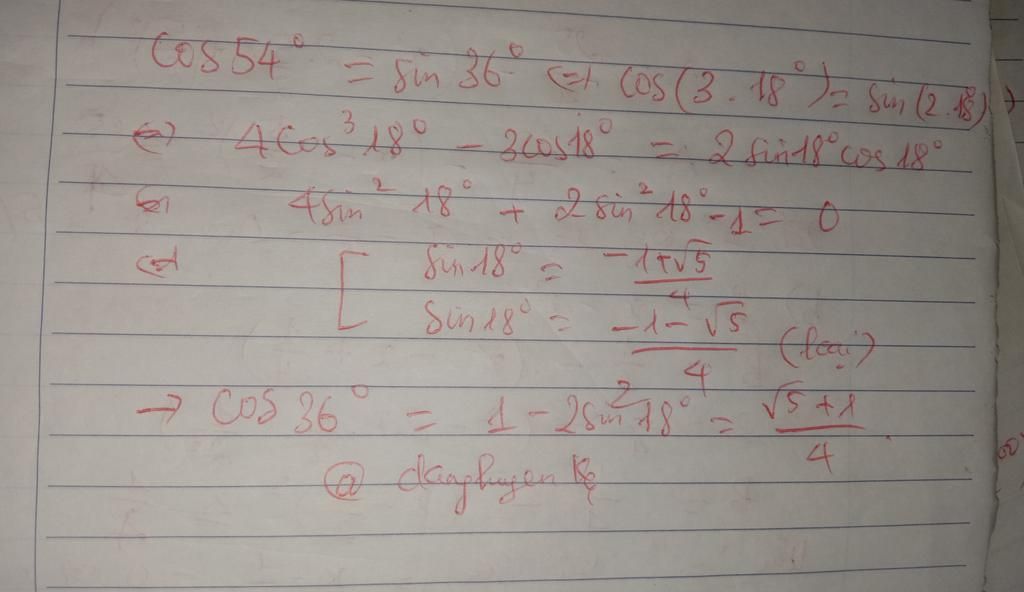 cos 54° = sin 36° ⇔ cos(3.18°) = sin(2.18)
⇔ 4cos³18° - 3cos18° = 2sin18°cos18°
⇔ 4sin²18° + 2sin²18° - 1 = 0
⇔ [ sin18° = (-1+√5)/4
sin18° = (-1-√5)/4 (loại)
→ cos 36° = 1 - 2sin²18° = (√5+1)/4
@